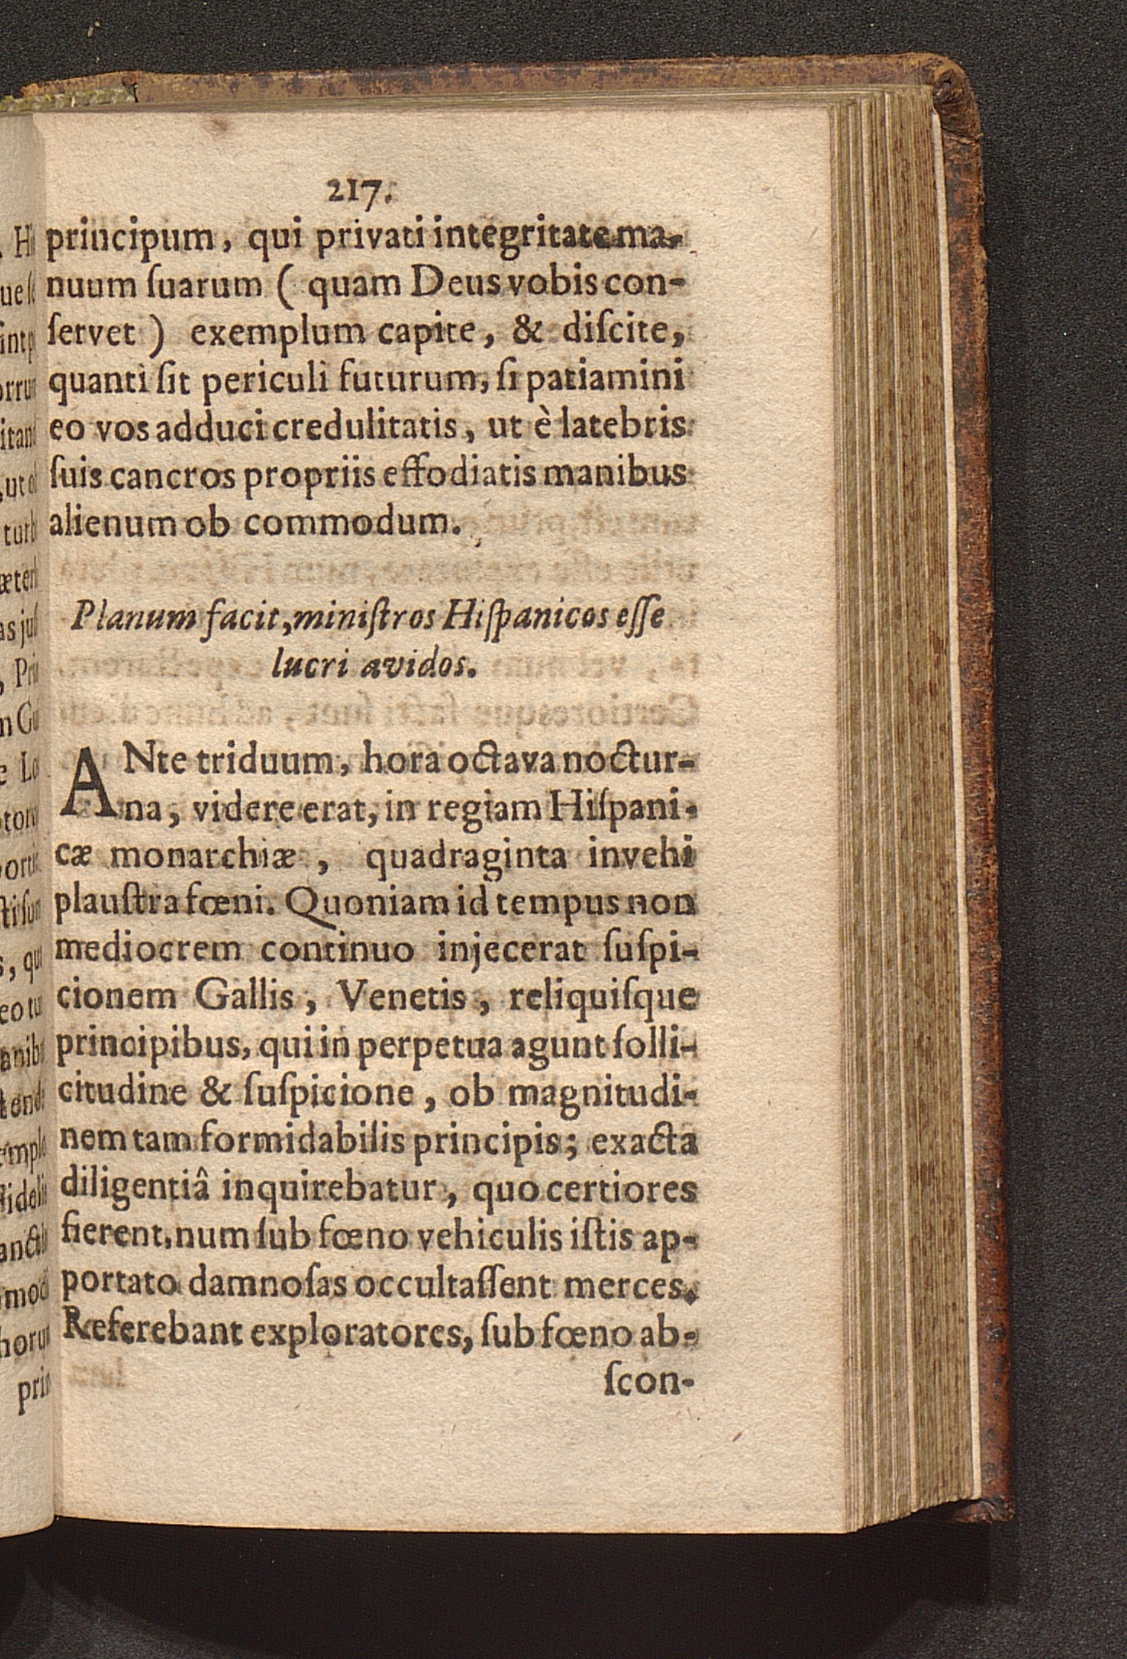 217.
principum, qui privati integritate ma-
nuum ſuarum ( quam Deus vobis con-
ſervet ) exemplum capite, & diſcite,
quanti ſit periculi futurum, ſi patiamini
eo vos adduci credulitatis, ut è latebris
ſuis cancros propriis effodiatis manibus
alienum ob commodum.
Planum facit, miniſtros Hiſpanicos eſſe
lucri avidos.
ANte triduum, hora octava noctur-
na, videre erat, in regiam Hiſpani-
cæ monarchiæ, quadraginta invehi
plauſtra fœni. Quoniam id tempus non
mediocrem continuo injecerat ſuſpi-
cionem Gallis, Venetis, reliquiſque
principibus, qui in perpetua agunt ſolli-
citudine & ſuſpicione, ob magnitudi-
nem tam formidabilis principis; exacta
diligentiâ inquirebatur, quo certiores
fierent, num ſub fœno vehiculis iſtis ap-
portato damnoſas occultaſſent merces.
Referebant exploratores, ſub fœno ab-
ſcon-